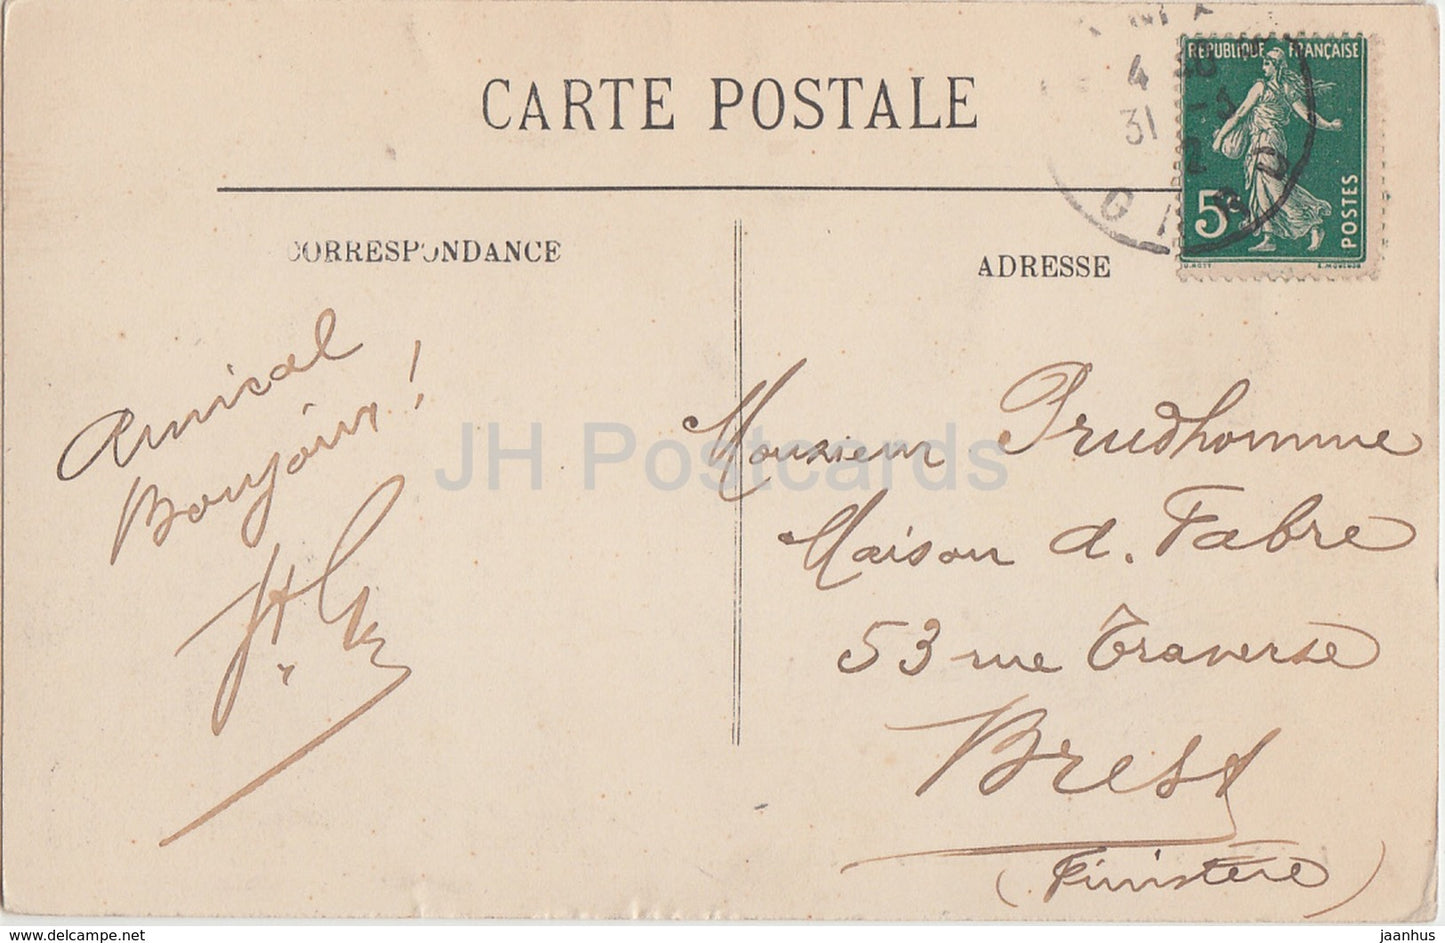 CARTE POSTALE
RÉPUBLIQUE FRANÇAISE
5c
POSTES
4
31 -3
12
GARD
CORRESPONDANCE
ADRESSE
Amical
Bonjour!
Monsieur Prudhomme
Maison A. Fabre
53 rue Traverse
Brest
(Finistère)
JH Postcards
delcampe.net
jaanhus